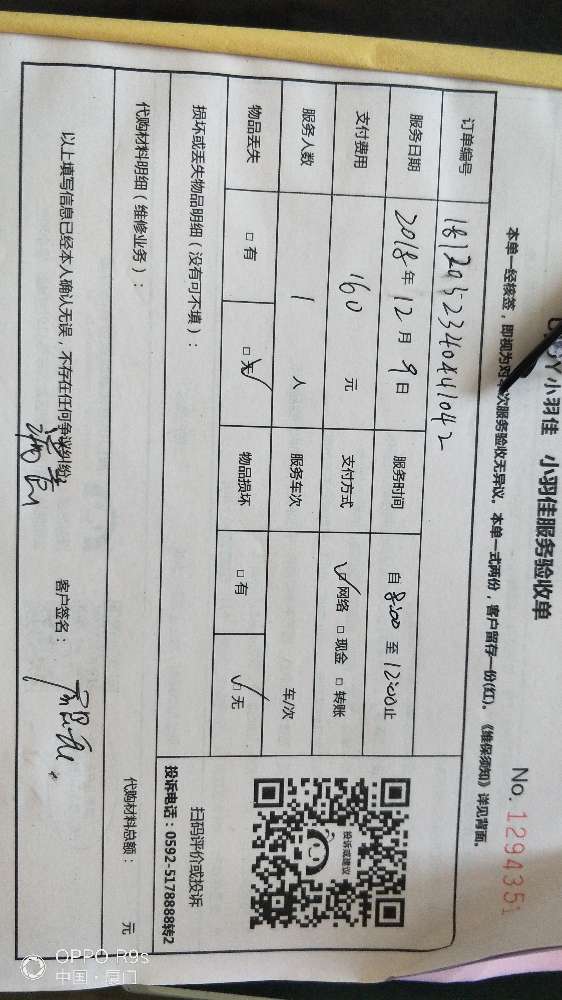 小羽佳 小羽佳服务验收单
No. 1294351
本单一经核签，即视为对本次服务验收无异议。本单一式两份，客户留存一份(红)。《维保须知》详见背面。
订单编号 181209523404441042
服务日期 2018年12月9日 服务时间 自8:00至12:00止
支付费用 160元 支付方式 ☑网络 □现金 □转账
服务人数 1人 服务车次 车/次
物品丢失 □有 ☑无 物品损坏 □有 ☑无
损坏或丢失物品明细（没有可不填）：
代购材料明细（维修业务）：
代购材料总额： 元
以上填写信息已经本人确认无误，不存在任何争议纠纷。
客户签名：
投诉或建议
扫码评价或投诉
投诉电话：0592-5178888转2
OPPO R9s
中国·厦门